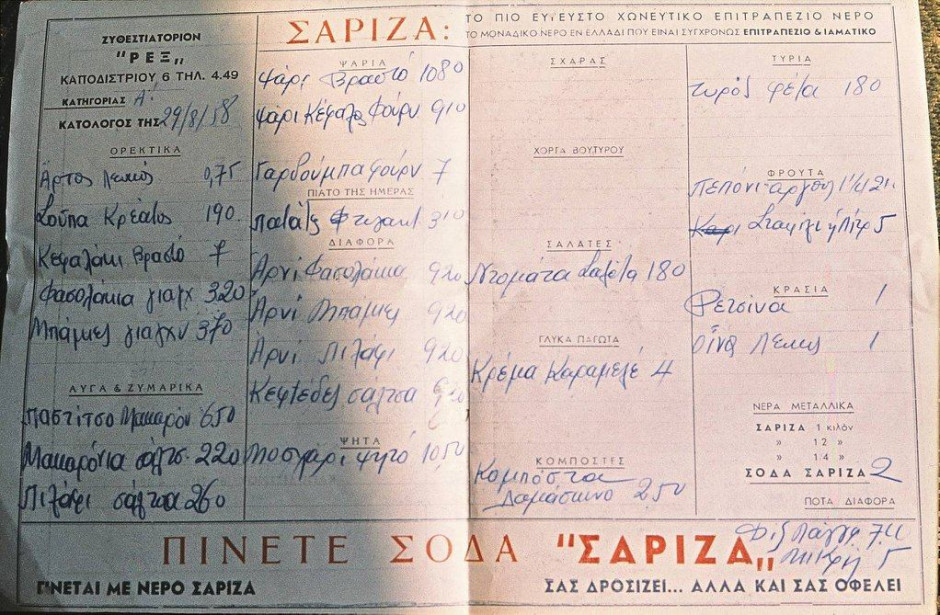 ΣΥΘΕΣΤΙΑΤΟΡΙΟΝ
"ΡΕΞ"
ΚΑΠΟΔΙΣΤΡΙΟΥ 6 ΤΗΛ. 4.49
ΚΑΤΗΓΟΡΙΑΣ Α'.
ΚΑΤΟΛΟΓΟΣ ΤΗΣ 29/8/58
ΣΑΡΙΖΑ:
ΤΟ ΠΙΟ ΕΥΓΕΥΣΤΟ ΧΩΝΕΥΤΙΚΟ ΕΠΙΤΡΑΠΕΖΙΟ ΝΕΡΟ
ΤΟ ΜΟΝΑΔΙΚΟ ΝΕΡΟ ΕΝ ΕΛΛΑΔΙ ΠΟΥ ΕΙΝΑΙ ΣΥΓΧΡΟΝΩΣ ΕΠΙΤΡΑΠΕΖΙΟ & ΙΑΜΑΤΙΚΟ
ΟΡΕΚΤΙΚΑ
Άρτος λευκός 0,75
Σούπα Κρέατος 190.
Κεφαλάκι Βραστό 7
Φασολάκια γιαχ 320
Μπάμιες γιαχν 370
ΑΥΓΑ & ΖΥΜΑΡΙΚΑ
Παστίτσο Μακαρόν 650
Μακαρόνια σάλτσ 220
Πιλάφι σάλτσα 260
ΨΑΡΙΑ
Ψάρι Βραστό 1080
Ψάρι Κέφαλος Φούρν 910
Γαρδούμπα φούρν 7
ΠΙΑΤΟ ΤΗΣ ΗΜΕΡΑΣ
Πατάτ 310
ΔΙΑΦΟΡΑ
Αρνί Φασολάκια 920
Αρνί Μπάμιες 920
Αρνί Πιλάφι 920
Κεφτέδες σάλτσα
ΨΗΤΑ
Μοσχάρι ψητό 1050
ΣΧΑΡΑΣ
ΧΟΡΤΑ ΒΟΥΤΥΡΟΥ
ΣΑΛΑΤΕΣ
Ντομάτα Σαλάτα 180
ΓΛΥΚΑ ΠΑΓΩΤΑ
Κρέμα Καραμελέ 4
ΚΟΜΠΟΣΤΕΣ
Κομπόστα
Δαμάσκηνο 250
ΤΥΡΙΑ
τυρός φέτα 180
ΦΡΟΥΤΑ
Πεπόνι
Σταφύλι 5
ΚΡΑΣΙΑ
Ρετσίνα 1
Οίνος Λευκός 1
ΝΕΡΑ ΜΕΤΑΛΛΙΚΑ
ΣΑΡΙΖΑ 1 κιλόν
» 12 »
» 14 »
ΣΟΔΑ ΣΑΡΙΖΑ 2
ΠΟΤΑ ΔΙΑΦΟΡΑ
Φιξ Μεγάλη 7.
Μικρή 5
ΠΙΝΕΤΕ ΣΟΔΑ "ΣΑΡΙΖΑ"
ΓΙΝΕΤΑΙ ΜΕ ΝΕΡΟ ΣΑΡΙΖΑ
ΣΑΣ ΔΡΟΣΙΖΕΙ... ΑΛΛΑ ΚΑΙ ΣΑΣ ΟΦΕΛΕΙ